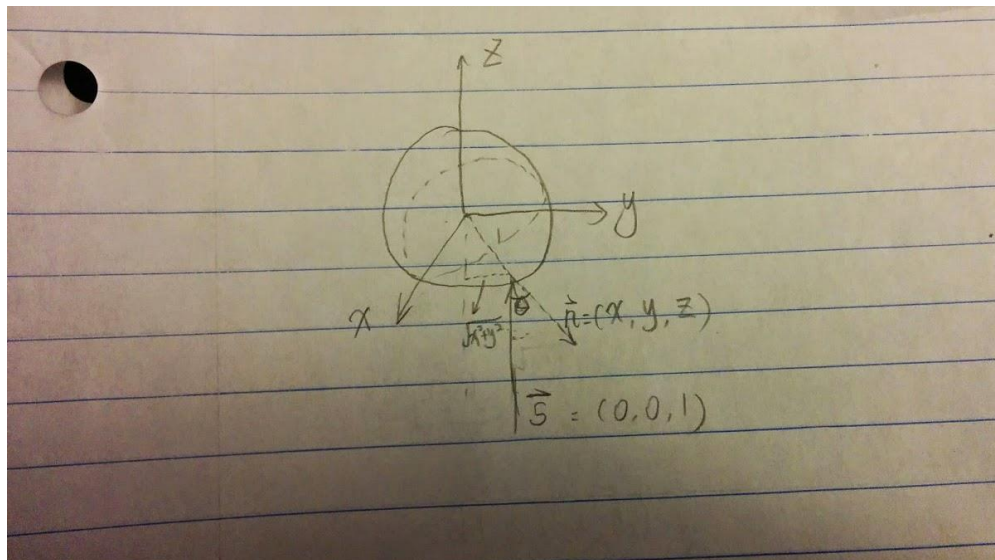 z
y
1
x
√x²+y²
θ
n⃗=(x, y, z)
s⃗ = (0,0,1)